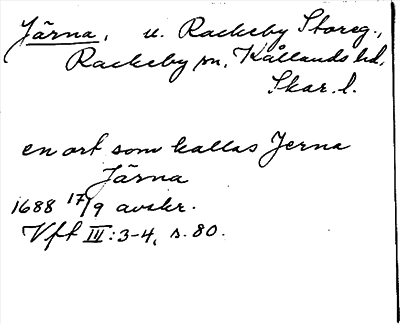 Järna, u. Rackeby Storeg.,
Rackeby sn, Kållands hd,
Skar. l.
en ort som kallas Jerna
Järna
1688 17/9 avskr.
Vft III:3-4, s. 80.